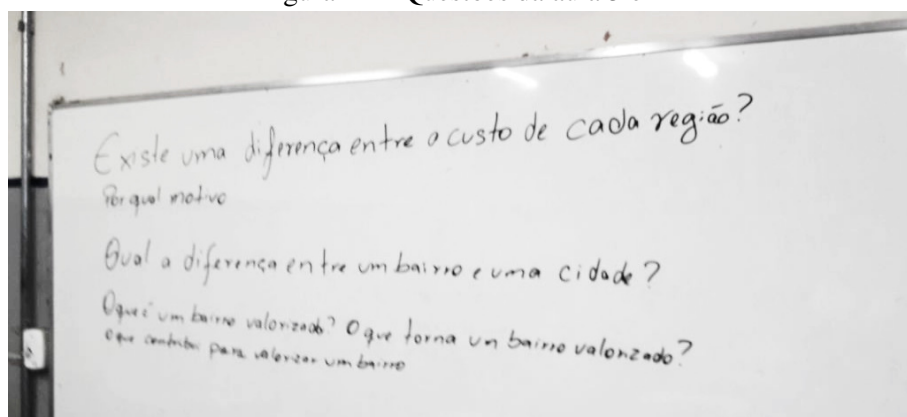 Existe uma diferença entre o custo de cada região?
Por qual motivo
Qual a diferença entre um bairro e uma cidade?
O que é um bairro valorizado? O que torna um bairro valorizado?
O que contribui para valorizar um bairro